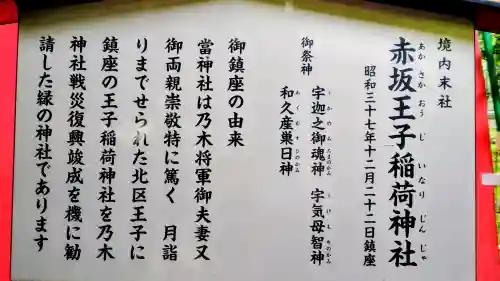 境内末社
赤坂王子稲荷神社
あかさかおうじいなりじんじゃ
昭和三十七年十二月二十二日鎮座
御祭神
宇迦之御魂神 宇気母智神
うかのみたまのかみ うけもちのかみ
和久産巣日神
わくむすびのかみ
御鎮座の由来
當神社は乃木将軍御夫妻又
御両親崇敬特に篤く 月詣
りまでせられた北区王子に
鎮座の王子稲荷神社を乃木
神社戦災復興竣成を機に勧
請した縁の神社であります